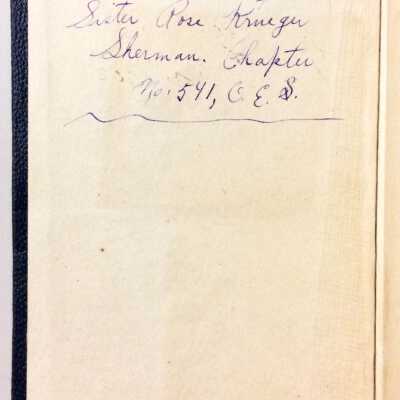 Sister Rose Krueger
Sherman. Chapter
No. 541, O. E. S.